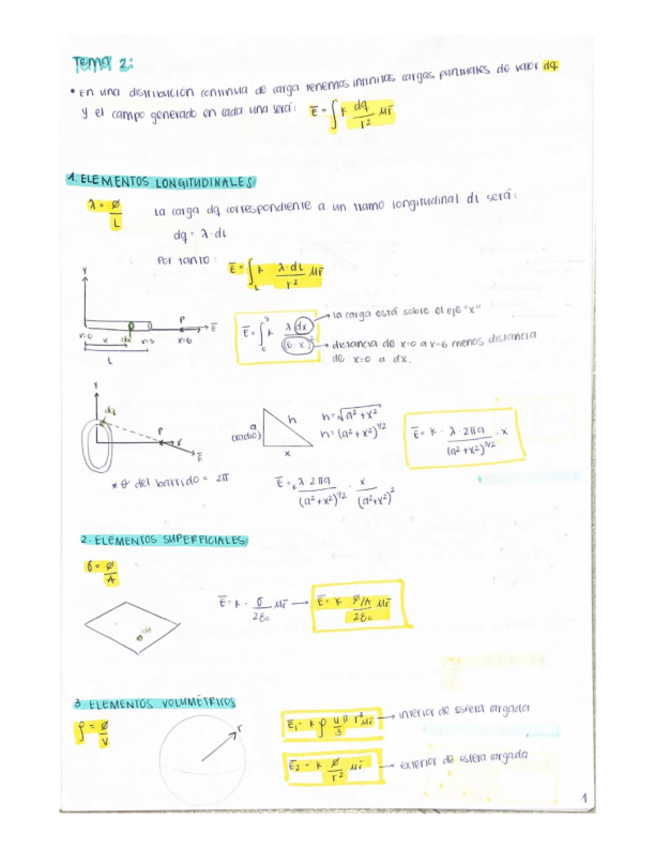 Tema 2:
• En una distribución continua de carga tenemos infinitas cargas puntuales de valor dq
y el campo generado en cada una será: E̅ = ∫ K dq/r² μr̅
1. ELEMENTOS LONGITUDINALES
λ = Ø/L
La carga dq correspondiente a un tramo longitudinal dL será:
dq = λ · dL
Por tanto: E̅ = ∫_L K λ·dL/r² μr̅
Y
P
E̅
x=0 x dx x=5 x=6
L
E̅ = ∫₀⁵ K λ dx/(6-x)²
la carga está sobre el eje "x"
distancia de x=0 a x=6 menos distancia
de x=0 a dx.
Y
dq
P
x
E̅
* θ del barrido = 2π
a
(radio)
h
x
h = √a² + x²
h = (a² + x²)^1/2
E̅ = K · λ · 2πa/(a² + x²)^3/2 · x
E̅ = K λ 2πa/(a² + x²)^1/2 · x/(a² + x²)²
2. ELEMENTOS SUPERFICIALES
σ = Ø/A
E̅ = K · σ/2ε₀ μr̅ → E̅ = K Ø/A/2ε₀ μr̅
3. ELEMENTOS VOLUMÉTRICOS
ρ = Ø/V
r
E̅₁ = K ρ 4π/3 r³ μr̅ → interior de esfera cargada
E̅₂ = K Ø/r² μr̅ → exterior de esfera cargada
1